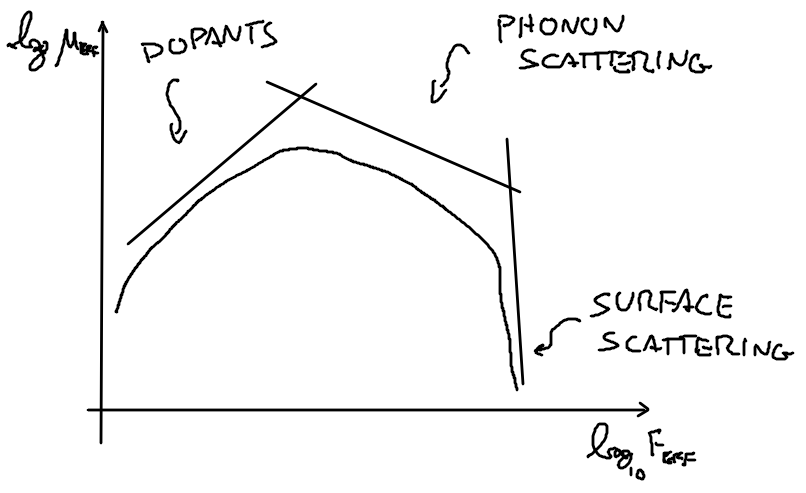 log μEFF
DOPANTS
PHONON
SCATTERING
SURFACE
SCATTERING
log10 FEFF